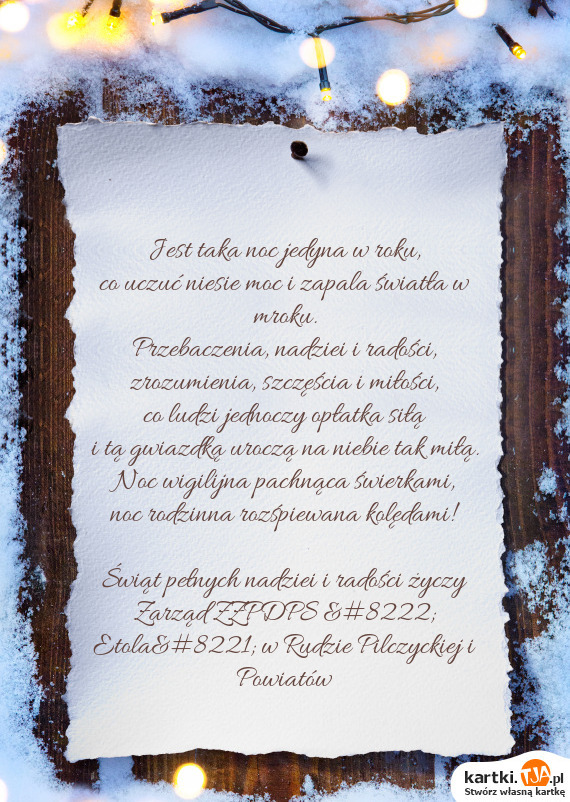 Jest taka noc jedyna w roku,
co uczuć niesie moc i zapala światła w
mroku.
Przebaczenia, nadziei i radości,
zrozumienia, szczęścia i miłości,
co ludzi jednoczy opłatka siłą
i tą gwiazdką uroczą na niebie tak miłą.
Noc wigilijna pachnąca świerkami,
noc rodzinna rozśpiewana kolędami!
Świąt pełnych nadziei i radości życzy
Zarząd ZZPDPS &#8222;
Etola&#8221; w Rudzie Pilczyckiej i
Powiatów
kartki.TJA.pl
Stwórz własną kartkę